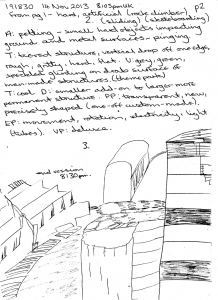 191830 14 Nov 2013 8:05pm UK p2
From pg 1 - hard, cylindrical (rock climber)
(sliding) (skateboarding)
A: pelting - small hard objects impacting
ground and metal surfaces - pinging.
T: tiered structure, vertical drop off one edge,
rough, gritty, hard, flat. V: grey, green,
speckled glinting on drab surface of
man-made structures. (theme park)
T: cool D: smaller add-on to larger more
permanent structure. PP: transparent, new,
precisely shaped (one-off custom-made).
EP: movement, rotation, electricity, light
(tubes). VP: deluxe.
3.
end session
8:30pm.